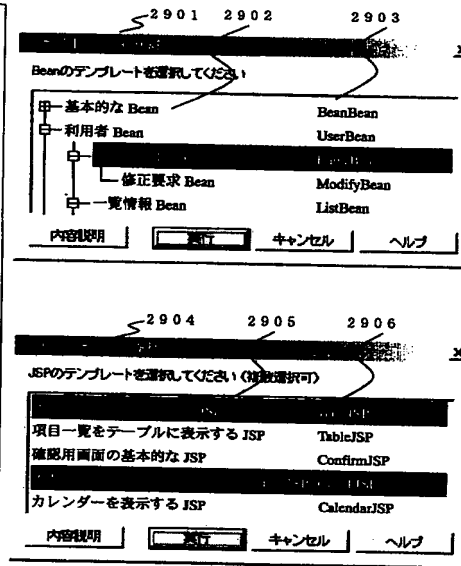 2901 2902 2903
Beanのテンプレートを選択してください
基本的な Bean BeanBean
利用者 Bean UserBean
修正要求 Bean ModifyBean
一覧情報 Bean ListBean
内容説明 実行 キャンセル ヘルプ
2904 2905 2906
JSPのテンプレートを選択してください(複数選択可)
JSP JSP
項目一覧をテーブルに表示する JSP TableJSP
確認用画面の基本的な JSP ConfirmJSP
カレンダーを表示する JSP CalendarJSP
内容説明 実行 キャンセル ヘルプ